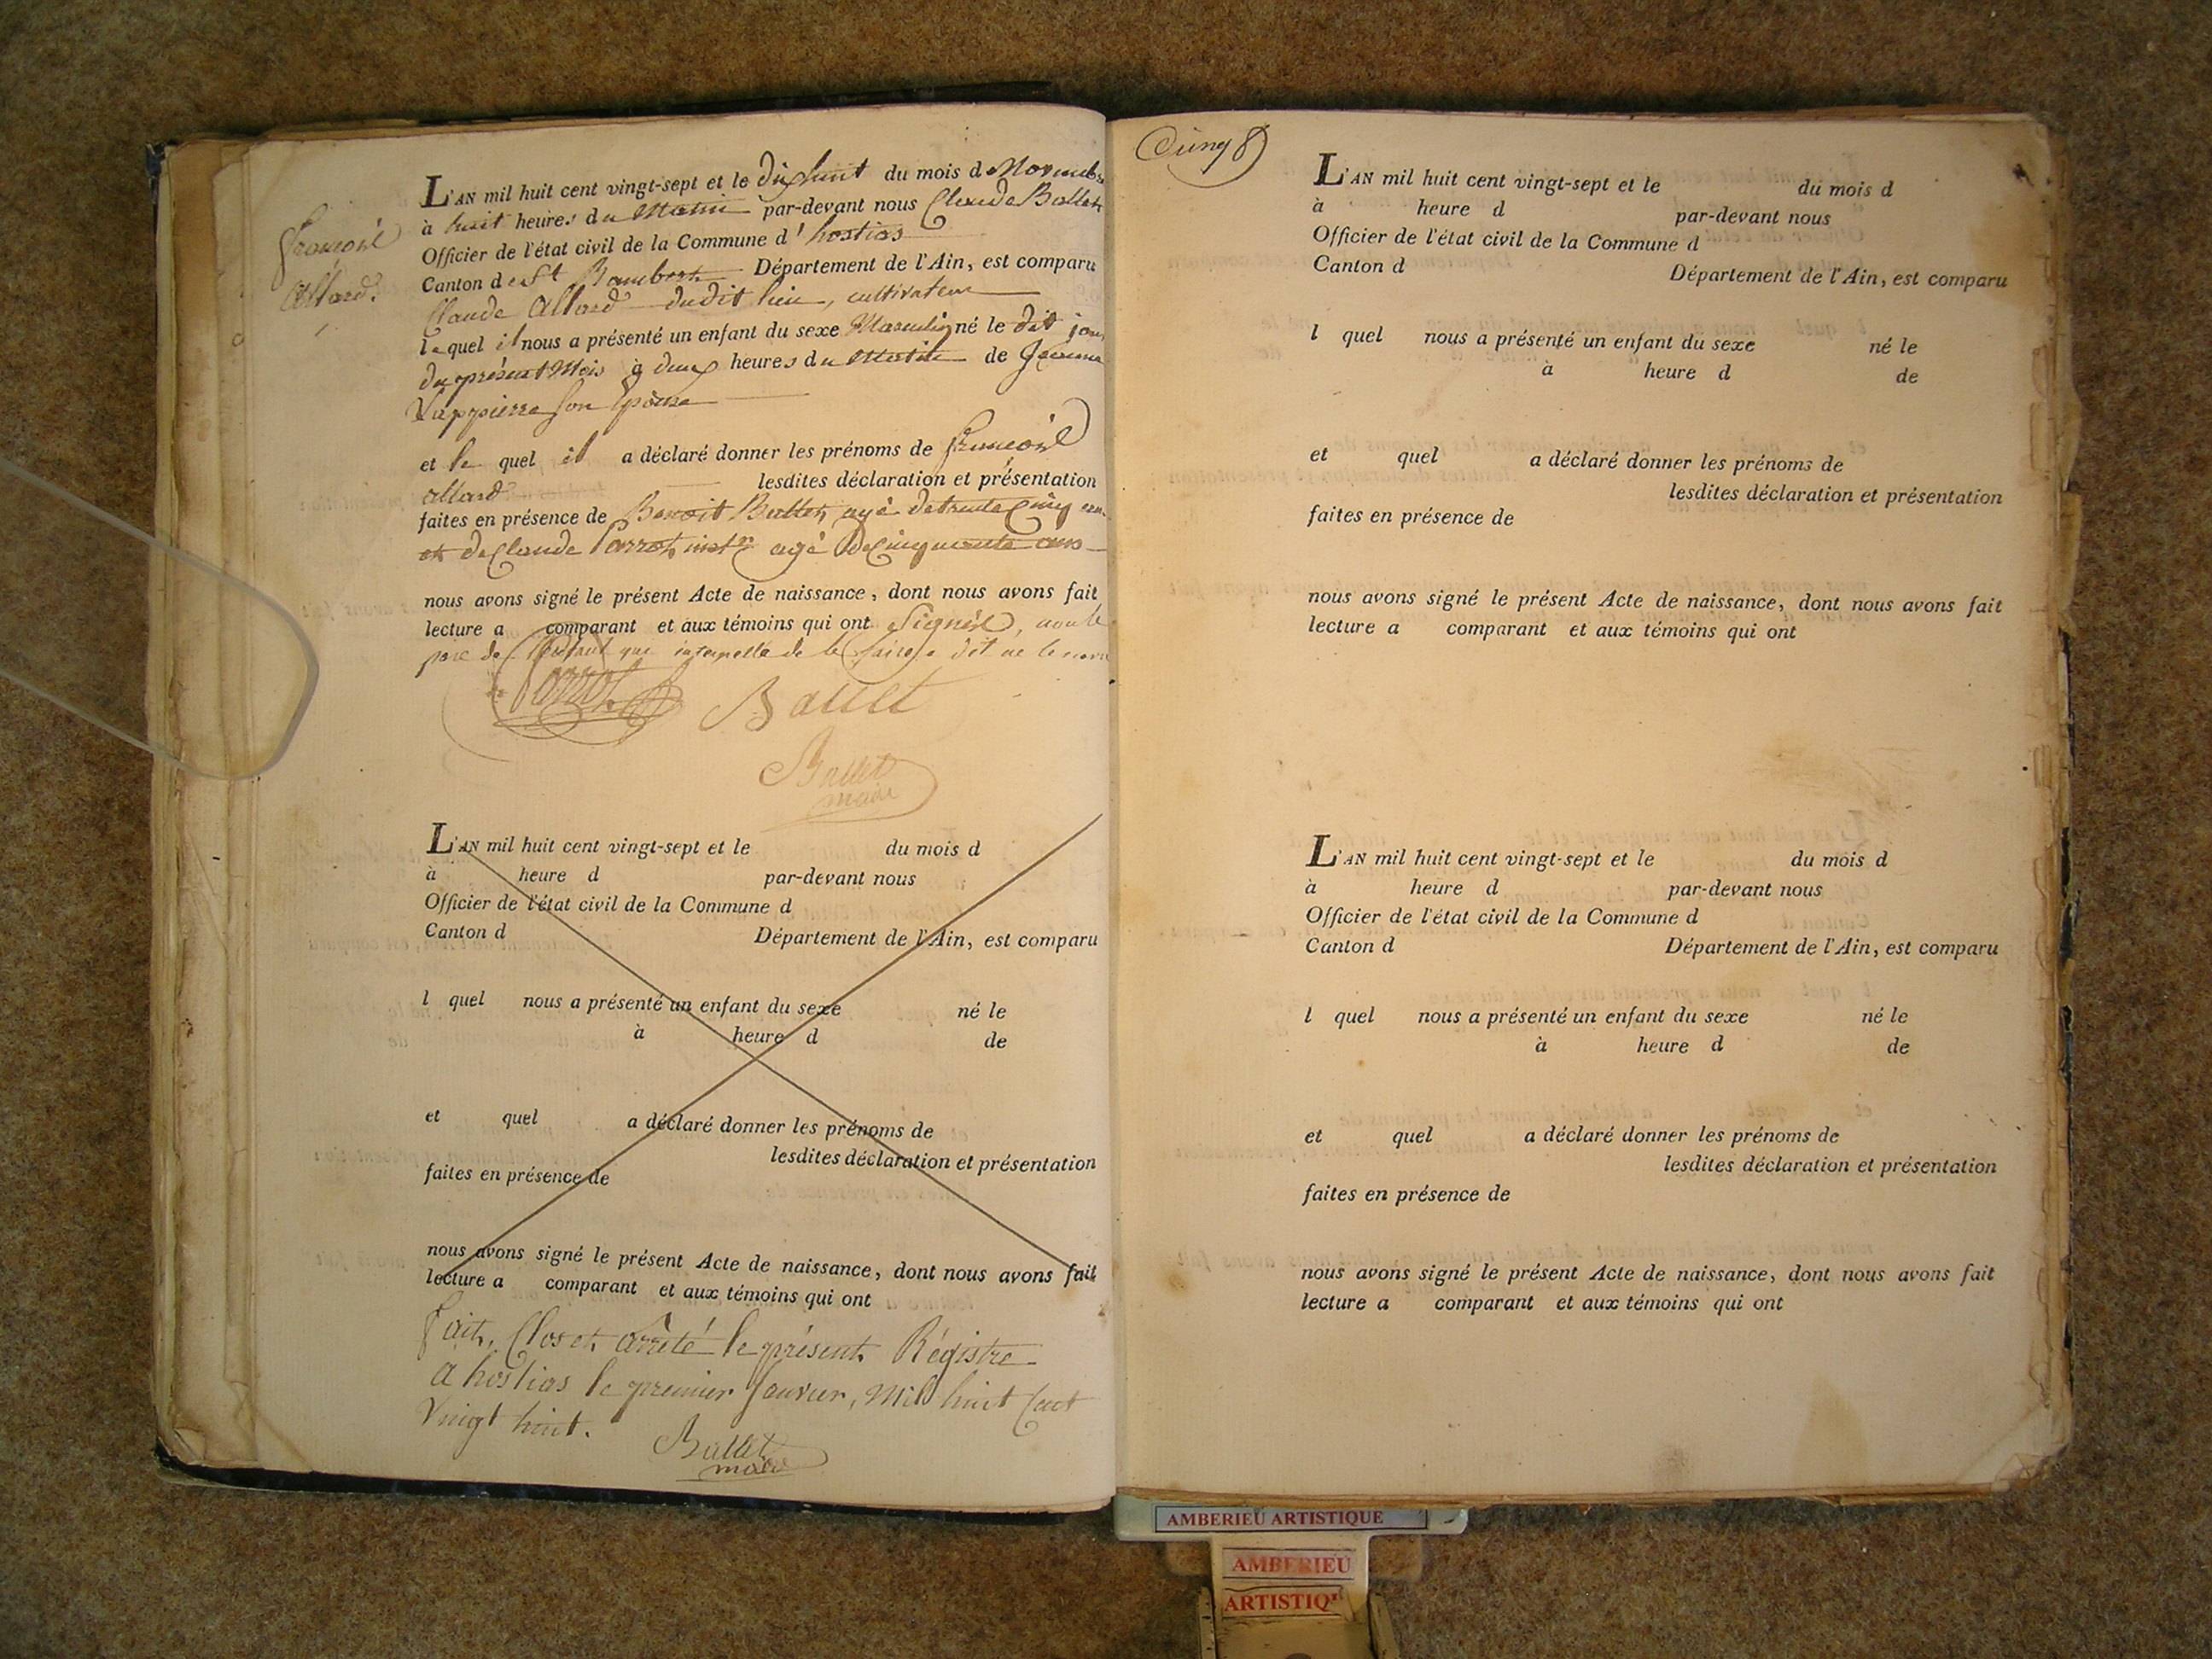 françois
allard.
L'AN mil huit cent vingt-sept et le dix huit du mois de Novembre
à huit heures du Matin par-devant nous Claude Ballet
Officier de l'état civil de la Commune d'hostias
Canton de St Rambert Département de l'Ain, est comparu
Claude allard dudit lieu, cultivateur
lequel il nous a présenté un enfant du sexe Masculin né le dit jour
du présent Mois à deux heures du Matin de
Lappierre son Epouse
et le quel il a déclaré donner les prénoms de françois
allard lesdites déclaration et présentation
faites en présence de Benoit Ballet, agé de trente Cinq ans
et de Claude Parrot, agé de Cinquante ans
nous avons signé le présent Acte de naissance, dont nous avons fait
lecture a comparant et aux témoins qui ont signés, non le
père de l'Enfant qui interpellé de le faire a dit ne le savoir
Parrot Ballet
Ballet
maire
L'AN mil huit cent vingt-sept et le du mois d
à heure d par-devant nous
Officier de l'état civil de la Commune d
Canton d Département de l'Ain, est comparu
l quel nous a présenté un enfant du sexe né le
à heure d de
et quel a déclaré donner les prénoms de
lesdites déclaration et présentation
faites en présence de
nous avons signé le présent Acte de naissance, dont nous avons fait
lecture a comparant et aux témoins qui ont
fait, Clos et arrêté le présent Régistre
a hostias le premier Janvier, mil huit Cent
Vingt huit.
Ballet
maire
Cinq
L'AN mil huit cent vingt-sept et le du mois d
à heure d par-devant nous
Officier de l'état civil de la Commune d
Canton d Département de l'Ain, est comparu
l quel nous a présenté un enfant du sexe né le
à heure d de
et quel a déclaré donner les prénoms de
lesdites déclaration et présentation
faites en présence de
nous avons signé le présent Acte de naissance, dont nous avons fait
lecture a comparant et aux témoins qui ont
L'AN mil huit cent vingt-sept et le du mois d
à heure d par-devant nous
Officier de l'état civil de la Commune d
Canton d Département de l'Ain, est comparu
l quel nous a présenté un enfant du sexe né le
à heure d de
et quel a déclaré donner les prénoms de
lesdites déclaration et présentation
faites en présence de
nous avons signé le présent Acte de naissance, dont nous avons fait
lecture a comparant et aux témoins qui ont
AMBERIEU ARTISTIQUE
AMBERIEU
ARTISTIQ